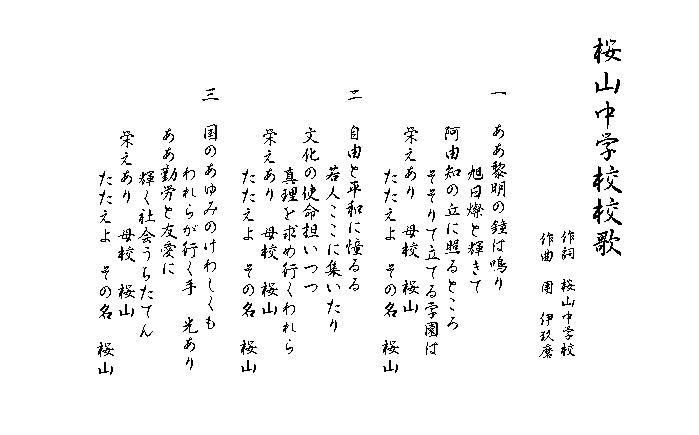 桜山中学校校歌
作詞 桜山中学校
作曲 團 伊玖磨
一 ああ黎明の鐘は鳴り
旭日燦と輝きて
阿由知の丘に照るところ
そそりて立てる学園は
栄えあり 母校 桜山
たたえよ その名 桜山
二 自由と平和に憧るる
若人ここに集いたり
文化の使命担いつつ
真理を求め行くわれら
栄えあり 母校 桜山
たたえよ その名 桜山
三 国のあゆみのけわしくも
われらが行く手 光あり
ああ勤労と友愛に
輝く社会うちたてん
栄えあり 母校 桜山
たたえよ その名 桜山